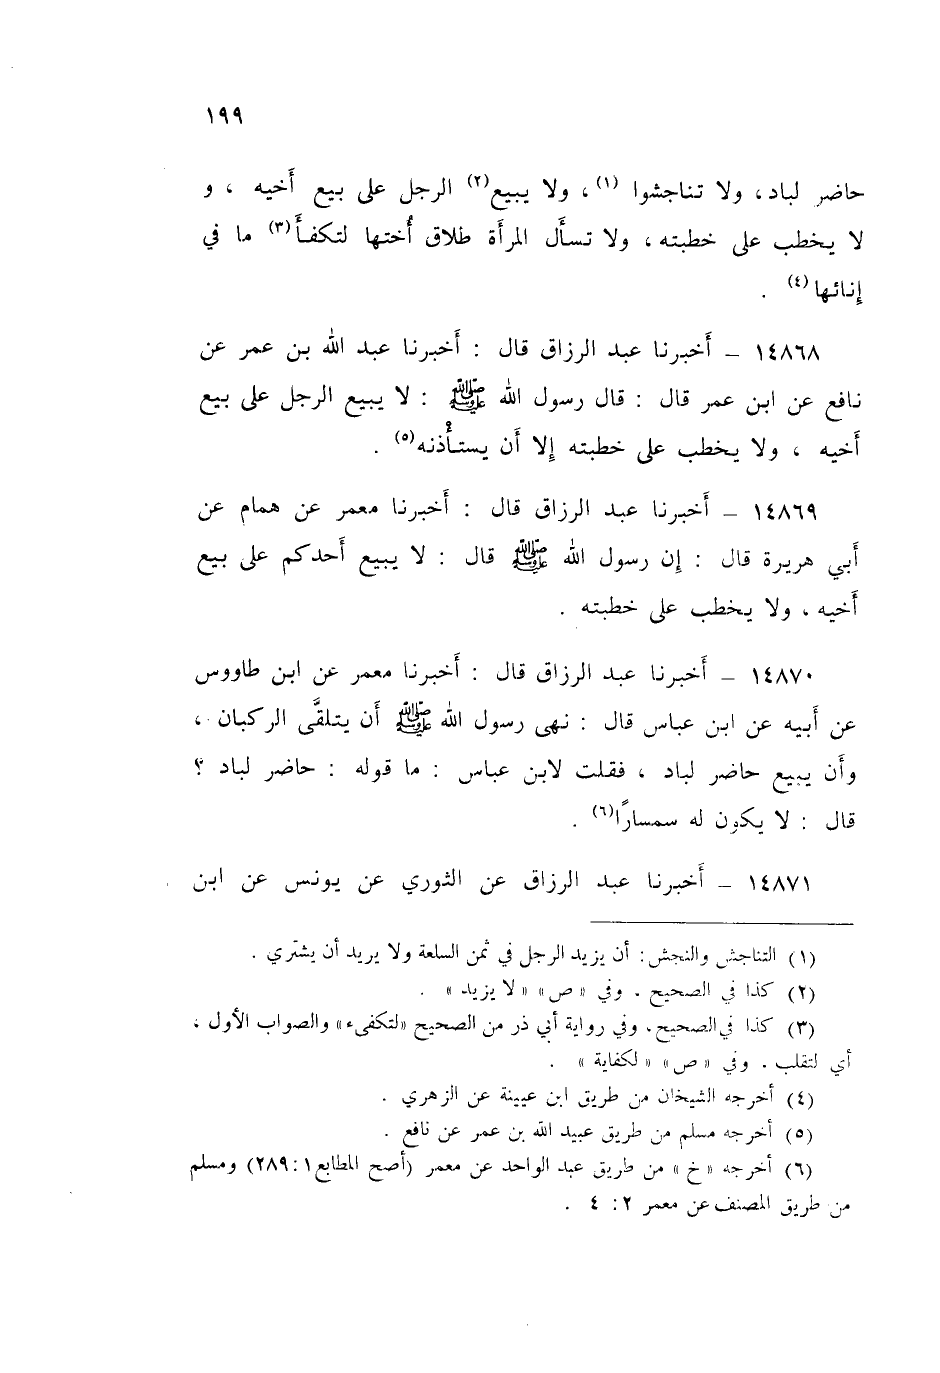 ١٩٩
حاضر لباد، ولا تناجشوا (١)، ولا يبيع(٢) الرجل على بيع أخيه ، و
لا يخطب على خطبته، ولا تسأل المرأة طلاق أُختها لتكفأَ(٣) ما في
إنائها(٤) .
١٤٨٦٨ – أخبرنا عبد الرزاق قال : أخبرنا عبد الله بن عمر عن
نافع عن ابن عمر قال : قال رسول الله ﷺ : لا يبيع الرجل على بيع
أخيه ، ولا يخطب على خطبته إلا أن يستأْذنه(٥) .
١٤٨٦٩ – أخبرنا عبد الرزاق قال : أخبرنا معمر عن همام عن
أبي هريرة قال : إن رسول الله ﷺ قال : لا يبيع أحدكم على بيع
أخيه ، ولا يخطب على خطبته .
١٤٨٧٠ – أخبرنا عبد الرزاق قال : أخبرنا معمر عن ابن طاووس
عن أبيه عن ابن عباس قال : نهى رسول الله ﷺ أن يتلقَّى الركبان ،
وأن يبيع حاضر لباد ، فقلت لابن عباس : ما قوله : حاضر لباد ؟
قال : لا يكون له سمسارًا(٦) .
١٤٨٧١ – أخبرنا عبد الرزاق عن الثوري عن يونس عن ابن
(١) التناجش والنجش: أن يزيد الرجل في ثمن السلعة ولا يريد أن يشتري .
(٢) كذا في الصحيح . وفي « ص » « لا يزيد » .
(٣) كذا في الصحيح، وفي رواية أبي ذر من الصحيح «لتكفىء» والصواب الأول ،
أي لتقلب . وفي « ص » « لكفاية » .
(٤) أخرجه الشيخان من طريق ابن عيينة عن الزهري .
(٥) أخرجه مسلم من طريق عبيد الله بن عمر عن نافع .
(٦) أخرجه « خ » من طريق عبد الواحد عن معمر (أصح المطابع ١ : ٢٨٩) ومسلم
من طريق المصنف عن معمر ٢ : ٤ .